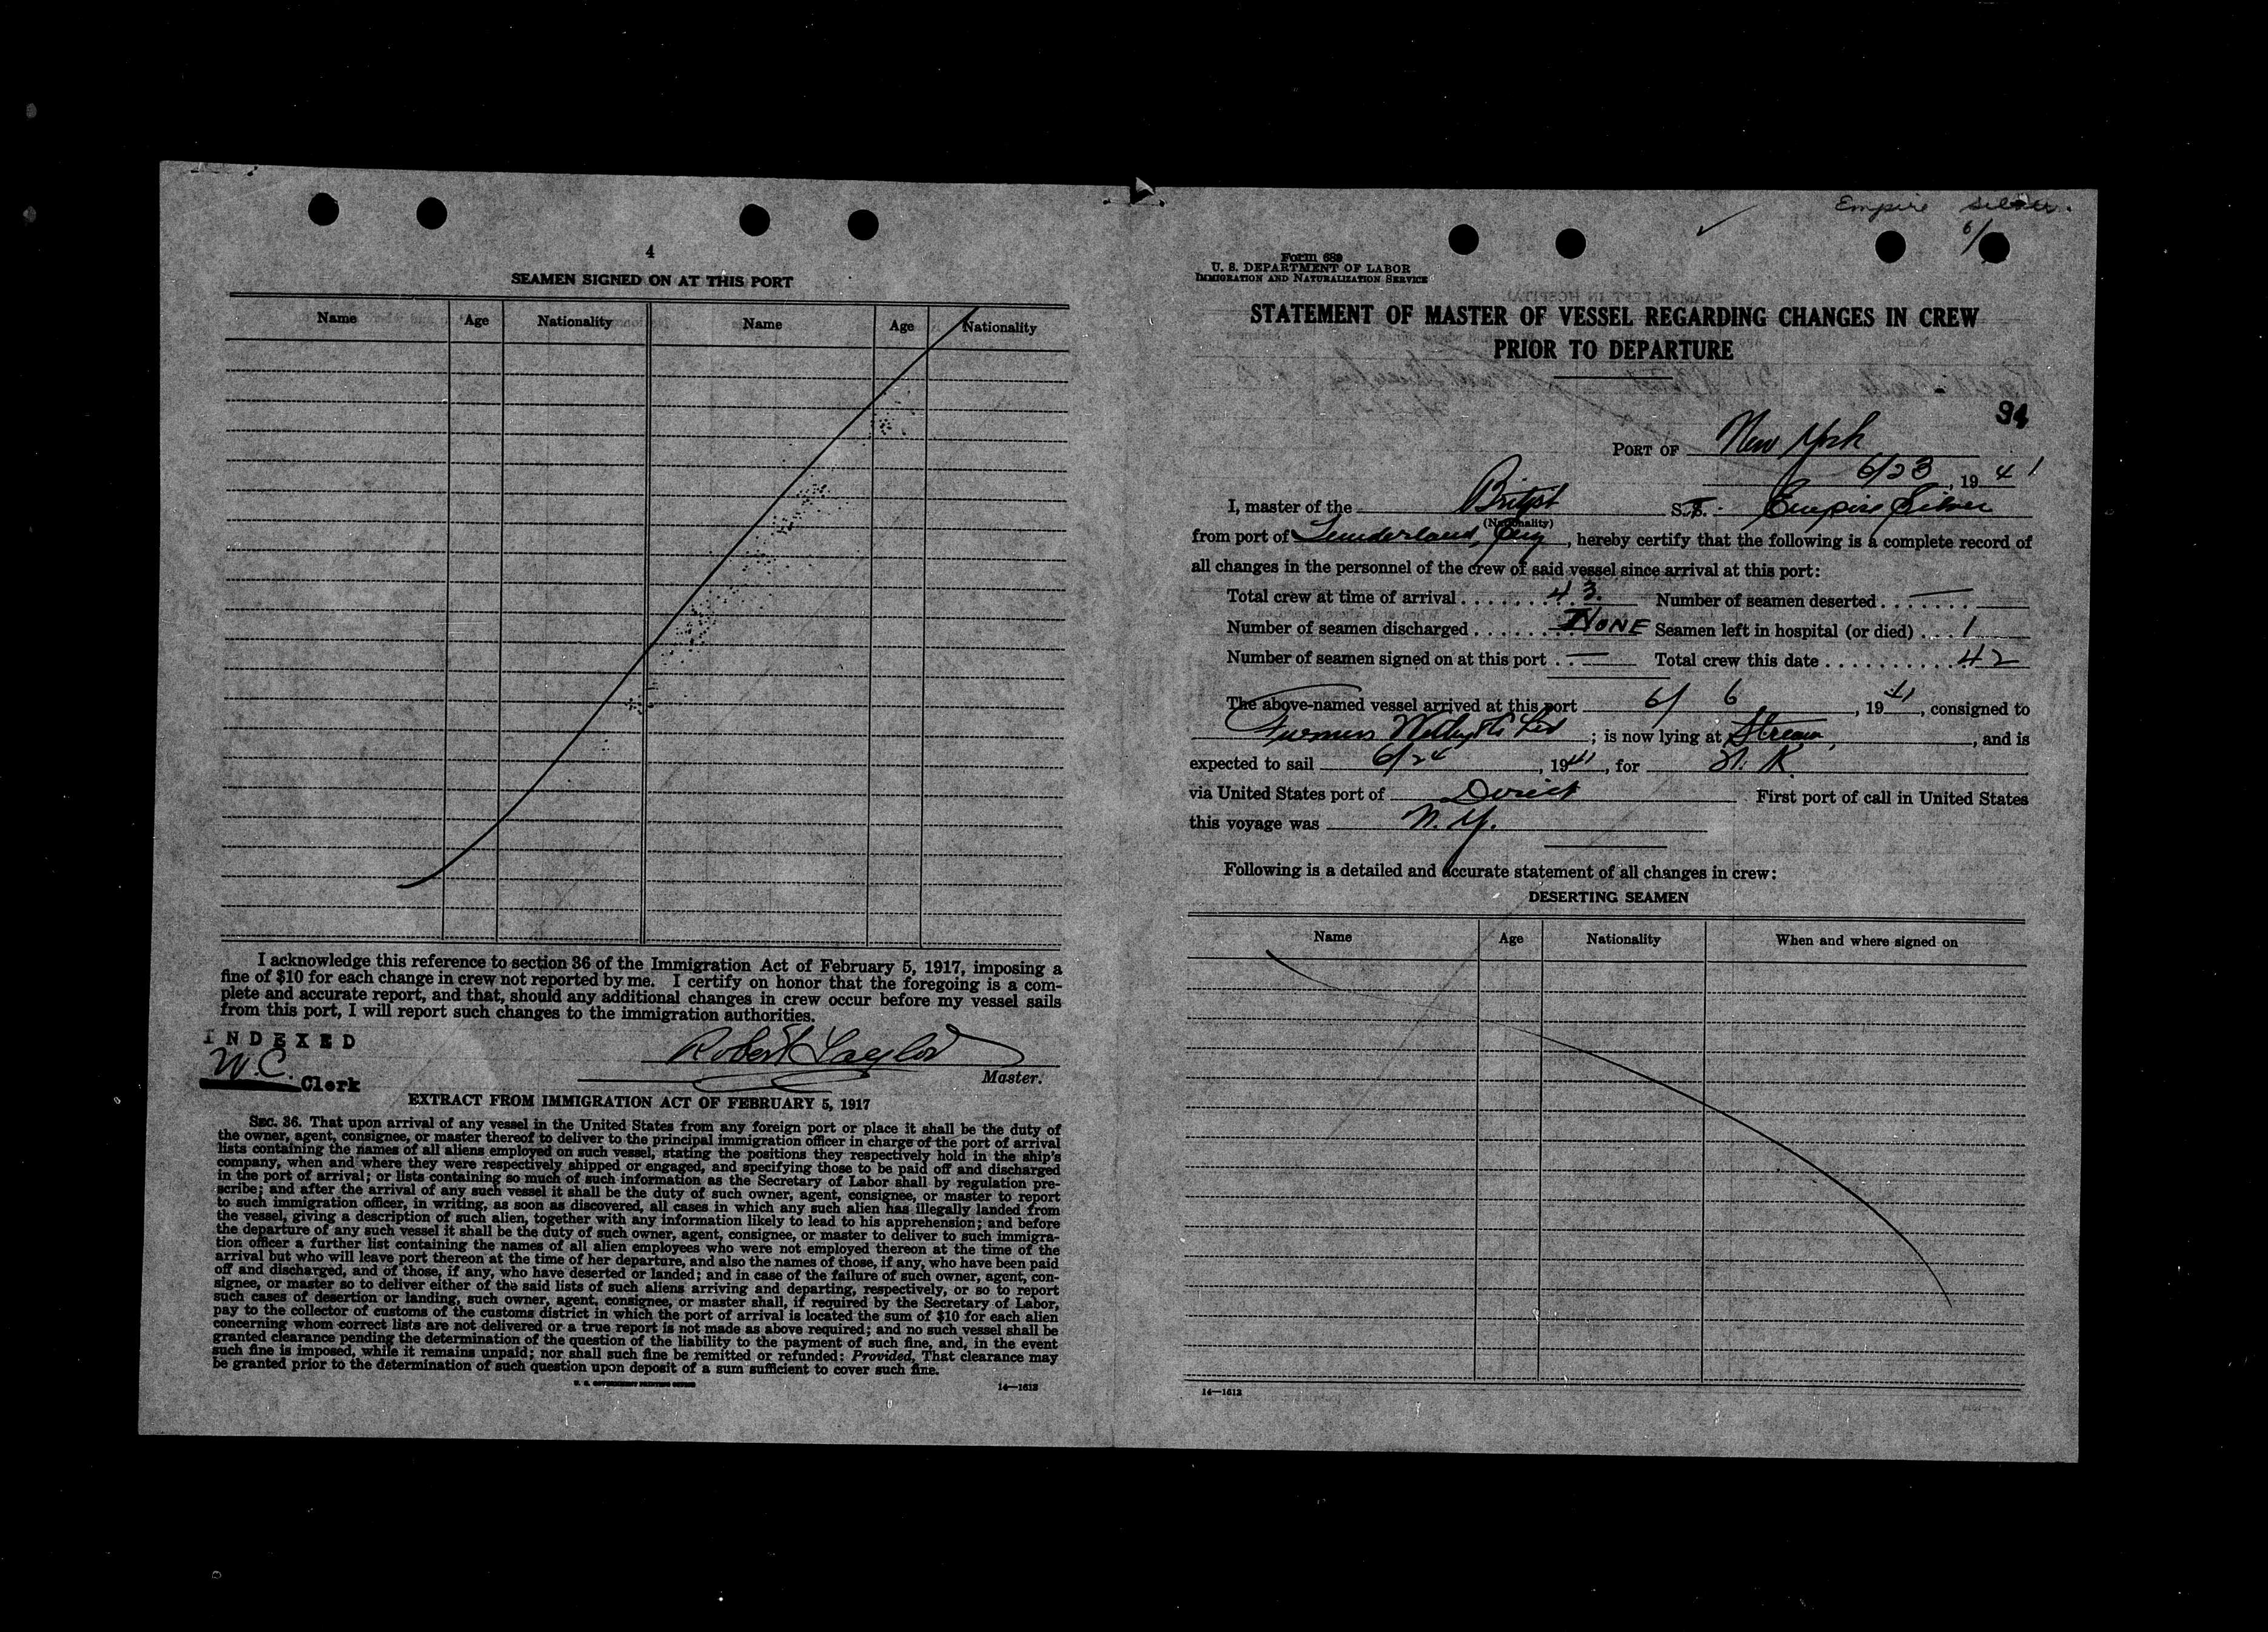 4
SEAMEN SIGNED ON AT THIS PORT
Name Age Nationality Name Age Nationality
I acknowledge this reference to section 36 of the Immigration Act of February 5, 1917, imposing a
fine of $10 for each change in crew not reported by me. I certify on honor that the foregoing is a com-
plete and accurate report, and that, should any additional changes in crew occur before my vessel sails
from this port, I will report such changes to the immigration authorities.
INDEXED
W.C. Clerk
Robert Taylor
Master.
EXTRACT FROM IMMIGRATION ACT OF FEBRUARY 5, 1917
SEC. 36. That upon arrival of any vessel in the United States from any foreign port or place it shall be the duty of
the owner, agent, consignee, or master thereof to deliver to the principal immigration officer in charge of the port of arrival
lists containing the names of all aliens employed on such vessel, stating the positions they respectively hold in the ship's
company, when and where they were respectively shipped or engaged, and specifying those to be paid off and discharged
in the port of arrival; or lists containing so much of such information as the Secretary of Labor shall by regulation pre-
scribe; and after the arrival of any such vessel it shall be the duty of such owner, agent, consignee, or master to report
to such immigration officer, in writing, as soon as discovered, all cases in which any such alien has illegally landed from
the vessel, giving a description of such alien, together with any information likely to lead to his apprehension; and before
the departure of any such vessel it shall be the duty of such owner, agent, consignee, or master to deliver to such immigra-
tion officer a further list containing the names of all alien employees who were not employed thereon at the time of the
arrival but who will leave port thereon at the time of her departure, and also the names of those, if any, who have been paid
off and discharged, and of those, if any, who have deserted or landed; and in case of the failure of such owner, agent, con-
signee, or master so to deliver either of the said lists of such aliens arriving and departing, respectively, or so to report
such cases of desertion or landing, such owner, agent, consignee, or master shall, if required by the Secretary of Labor,
pay to the collector of customs of the customs district in which the port of arrival is located the sum of $10 for each alien
concerning whom correct lists are not delivered or a true report is not made as above required; and no such vessel shall be
granted clearance pending the determination of the question of the liability to the payment of such fine, and, in the event
such fine is imposed, while it remains unpaid; nor shall such fine be remitted or refunded: Provided, That clearance may
be granted prior to the determination of such question upon deposit of a sum sufficient to cover such fine.
U. S. GOVERNMENT PRINTING OFFICE 14—1612
Empire Silver.
6/
Form 689
U. S. DEPARTMENT OF LABOR
IMMIGRATION AND NATURALIZATION SERVICE
STATEMENT OF MASTER OF VESSEL REGARDING CHANGES IN CREW
PRIOR TO DEPARTURE
94
PORT OF New York
6/23, 1941
I, master of the British S.S. Empire Silver
(Nationality)
from port of Sunderland, Eng, hereby certify that the following is a complete record of
all changes in the personnel of the crew of said vessel since arrival at this port:
Total crew at time of arrival 43. Number of seamen deserted —
Number of seamen discharged NONE Seamen left in hospital (or died) 1
Number of seamen signed on at this port — Total crew this date 42
The above-named vessel arrived at this port 6/ 6, 1941, consigned to
Furness Withy & Co Ltd; is now lying at Stream, and is
expected to sail 6/24, 1941, for U. K.
via United States port of Direct First port of call in United States
this voyage was N. Y.
Following is a detailed and accurate statement of all changes in crew:
DESERTING SEAMEN
Name Age Nationality When and where signed on
14—1612